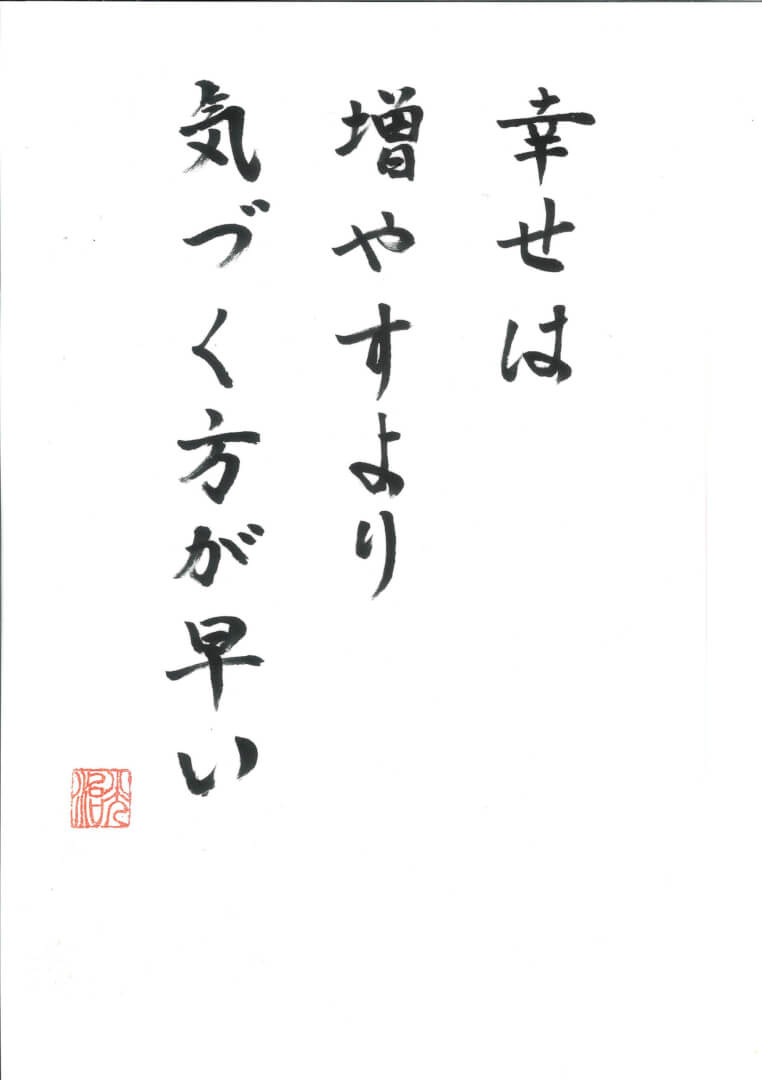 幸せは
増やすより
気づく方が早い